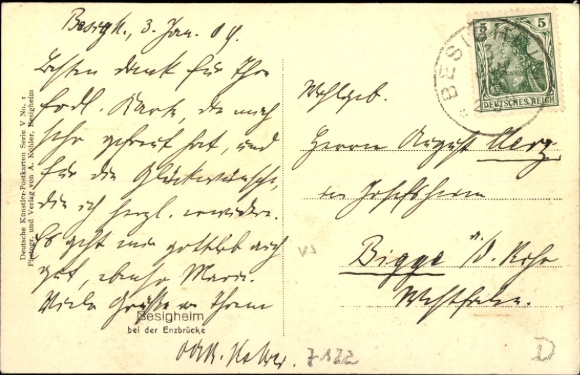 Besigh., 3. Jan. 09.
Besten Dank für Ihre
frdl. Karte, die mich
sehr gefreut hat, und
für die Glückwünsche,
die ich herzl. erwidere.
Es geht mir gottlob auch
gut, ebenso Marie.
Viele Grüße an Ihren
Besigheim
bei der Enzbrücke
Deutsche Künstler-Postkarten Serie V No. 1
und Verlag von A. Köhler, Besigheim
5 5
DEUTSCHES REICH
BESIGHEIM
Wohlgeb.
Herrn August
in Josefsheim
Bigge a/d. Ruhr
Westfalen.
7122
D